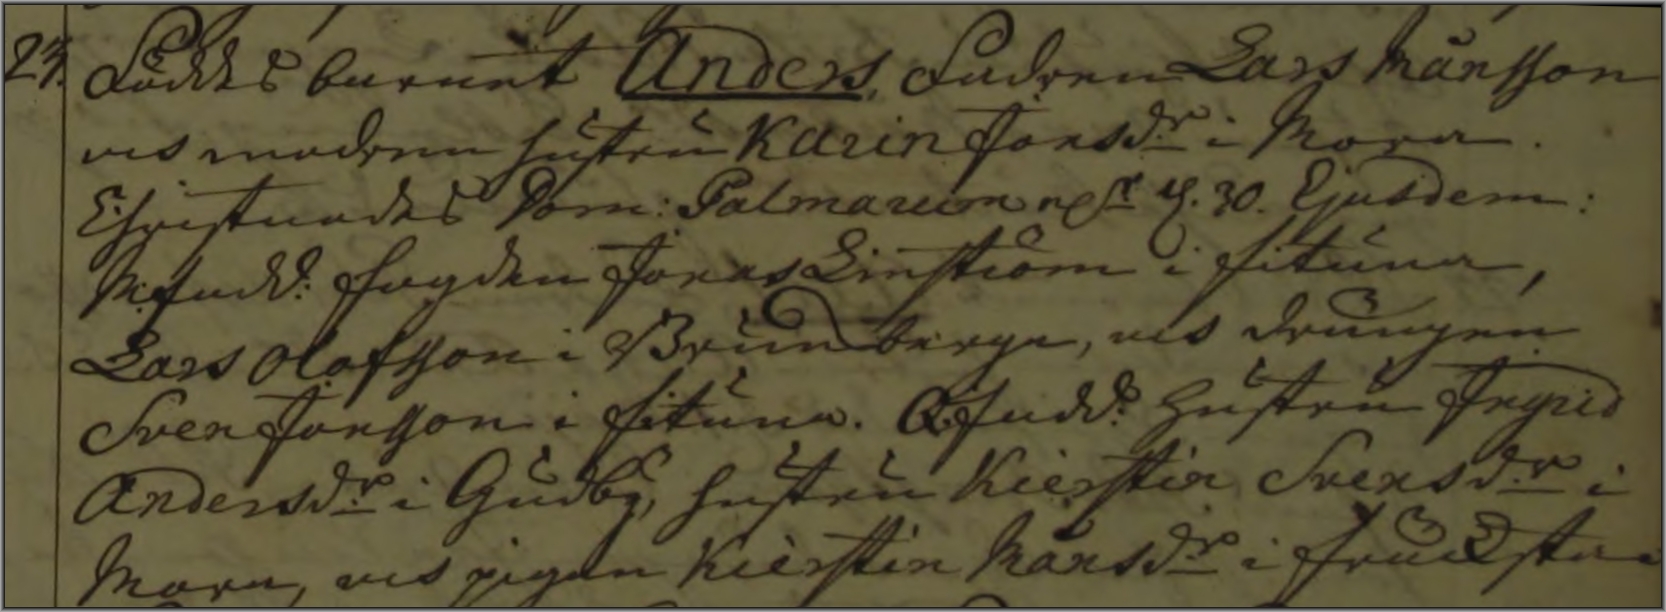 23. Föddes barnet Anders, Fadren Lars Månsson
och modren hustru Karin Jonsdr i Mora.
Christnades Dom: Palmarum s. d. 30. Ejusdem:
M. fadd: fogden Jonas Linström i Fituna,
Lars Olofsson i Brunberga, och drängen
Sven Jonsson i Fituna. Q. fadd: hustru Ingrid
Andersdr i Gudby, hustru Kierstin Svensdr i
Mora, och pigan Kierstin Månsdr i